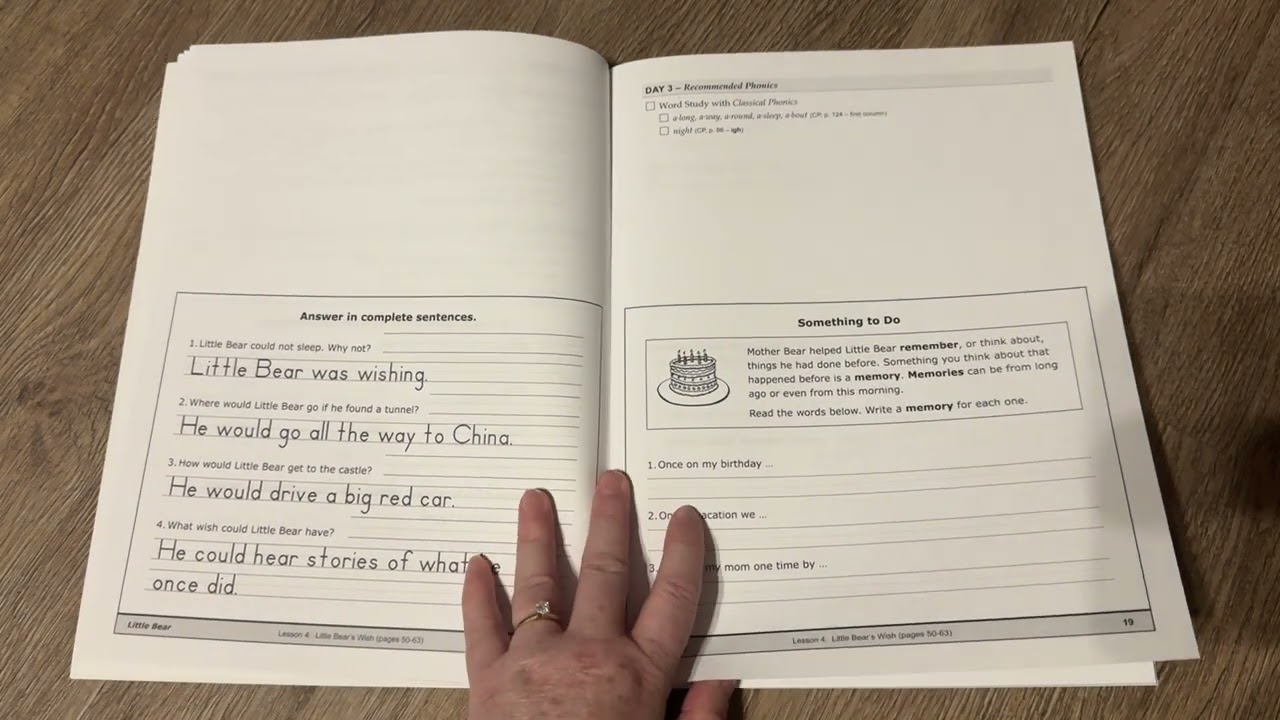 Answer in complete sentences.
1. Little Bear could not sleep. Why not?
Little Bear was wishing.
2. Where would Little Bear go if he found a tunnel?
He would go all the way to China.
3. How would Little Bear get to the castle?
He would drive a big red car.
4. What wish could Little Bear have?
He could hear stories of what
once did.
Little Bear
Lesson 4 Little Bear's Wish (pages 50-63)
DAY 3 – Recommended Phonics
Word Study with Classical Phonics
a·long, a·way, a·round, a·sleep, a·bout (CP, p. 124 – first column)
night (CP, p. 86 – igh)
Something to Do
Mother Bear helped Little Bear remember, or think about,
things he had done before. Something you think about that
happened before is a memory. Memories can be from long
ago or even from this morning.
Read the words below. Write a memory for each one.
1. Once on my birthday ...
2. we ...
3. my mom one time by ...
Lesson 4 Little Bear's Wish (pages 50-63)
19